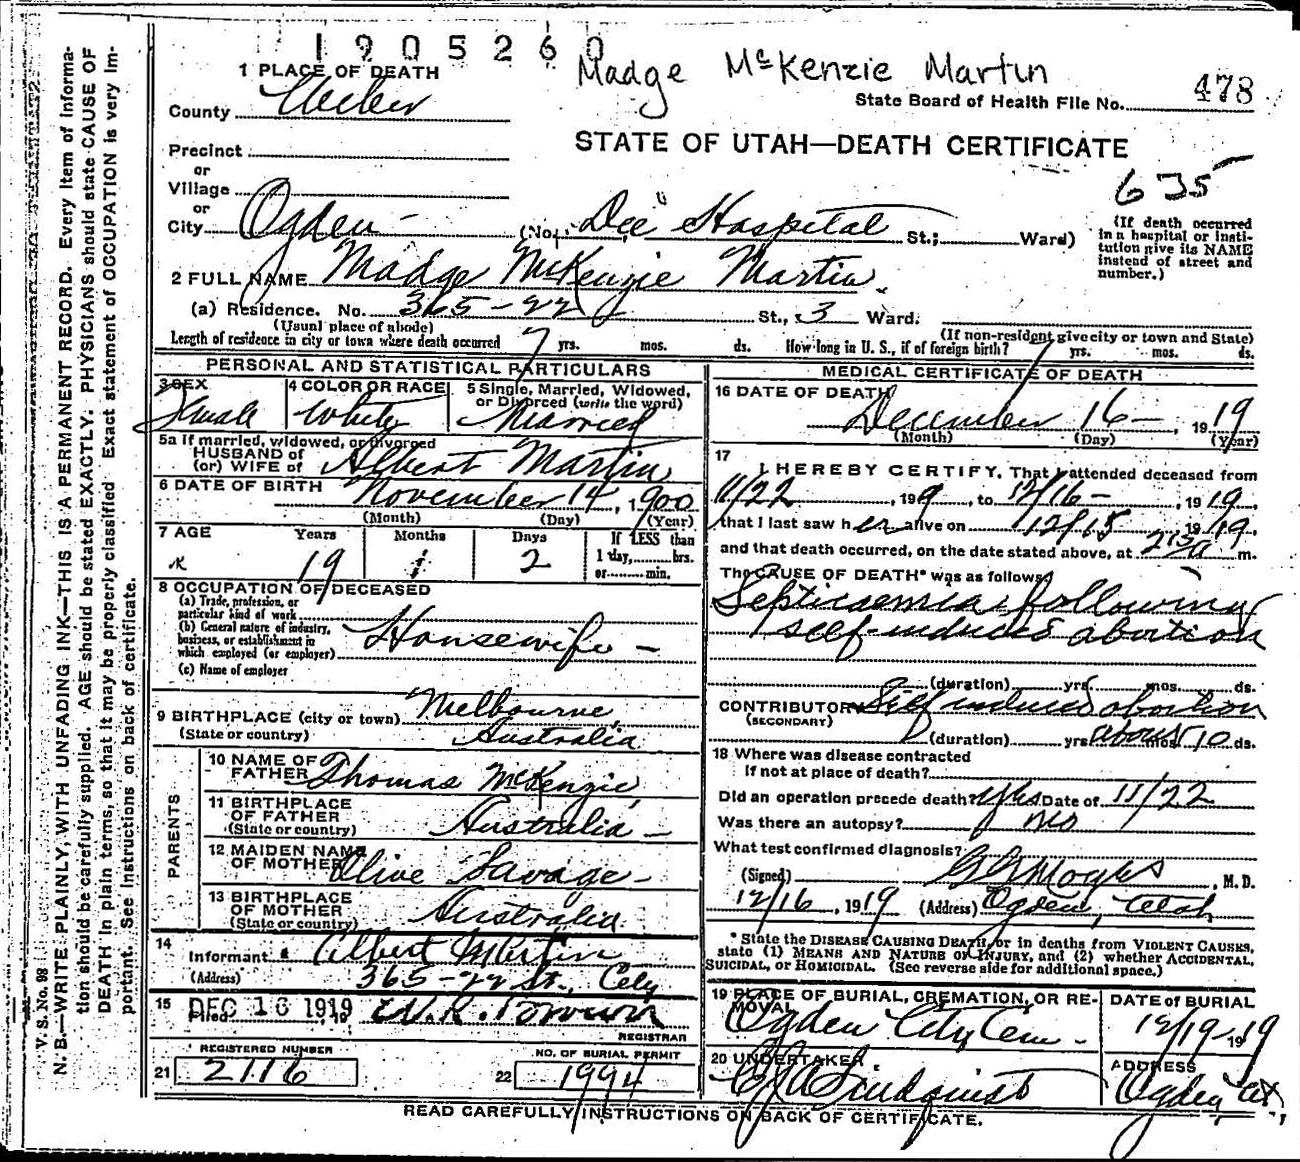 1905260
Madge McKenzie Martin
1 PLACE OF DEATH
478
County Weber
State Board of Health File No.
STATE OF UTAH—DEATH CERTIFICATE
Precinct
or
Village
635
or
City Ogden (No. Dee Hospital St.; Ward)
(If death occurred
in a hospital or insti-
tution give its NAME
instead of street and
number.)
2 FULL NAME Madge McKenzie Martin.
(a) Residence. No. 365-22 St., 3 Ward.
(Usual place of abode)
(If non-resident give city or town and State)
Length of residence in city or town where death occurred 7 yrs. mos. ds. How long in U. S., if of foreign birth? 7 yrs. mos. ds.
PERSONAL AND STATISTICAL PARTICULARS
3 SEX
Female
4 COLOR OR RACE
White
5 Single, Married, Widowed,
or Divorced (write the word)
Married
5a If married, widowed, or divorced
HUSBAND of
(or) WIFE of Albert Martin
6 DATE OF BIRTH November 14, 1900
(Month) (Day) (Year)
7 AGE Years Months Days If LESS than
19 1 2 1 day, hrs.
or min.
8 OCCUPATION OF DECEASED
(a) Trade, profession, or
particular kind of work
(b) General nature of industry,
business, or establishment in
which employed (or employer) Housewife —
(c) Name of employer
9 BIRTHPLACE (city or town) Melbourne,
(State or country) Australia
PARENTS
10 NAME OF
FATHER Thomas McKenzie
11 BIRTHPLACE
OF FATHER
(State or country) Australia —
12 MAIDEN NAME
OF MOTHER Olive Savage -
13 BIRTHPLACE
OF MOTHER
(State or country) Australia.
14
Informant Albert Martin
(Address) 365-22 St., City
15 DEC 16 1919
Filed , 19 W.R. Brown
REGISTRAR
REGISTERED NUMBER
21 2116
NO. OF BURIAL PERMIT
22 1994
MEDICAL CERTIFICATE OF DEATH
16 DATE OF DEATH
December 16 — , 1919
(Month) (Day) (Year)
17
I HEREBY CERTIFY, That I attended deceased from
11/22 , 199 , to 12/16 - , 1919.
that I last saw her alive on 12/15 1919.
and that death occurred, on the date stated above, at m.
The CAUSE OF DEATH* was as follows:
Septicaemia following
self-induced abortion
(duration) yrs. mos. ds.
CONTRIBUTORY Self induced abortion
(SECONDARY)
(duration) yrs about mos 10 ds.
18 Where was disease contracted
if not at place of death?
Did an operation precede death? Yes Date of 11/22
Was there an autopsy? no
What test confirmed diagnosis?
(Signed) , M. D.
12/16 , 1919 (Address) Ogden, Utah
* State the DISEASE CAUSING DEATH, or in deaths from VIOLENT CAUSES,
state (1) MEANS AND NATURE OF INJURY, and (2) whether ACCIDENTAL,
SUICIDAL, or HOMICIDAL. (See reverse side for additional space.)
19 PLACE OF BURIAL, CREMATION, OR RE-
MOVAL
Ogden City Cem -
DATE of BURIAL
12/19 - 1919
20 UNDERTAKER
Lindquist
ADDRESS
Ogden, Ut,
READ CAREFULLY INSTRUCTIONS ON BACK OF CERTIFICATE.
V. S. No. 98
N. B.—WRITE PLAINLY, WITH UNFADING INK—THIS IS A PERMANENT RECORD. Every item of informa-
tion should be carefully supplied. AGE should be stated EXACTLY. PHYSICIANS should state CAUSE OF
DEATH in plain terms, so that it may be properly classified. Exact statement of OCCUPATION is very im-
portant. See instructions on back of certificate.